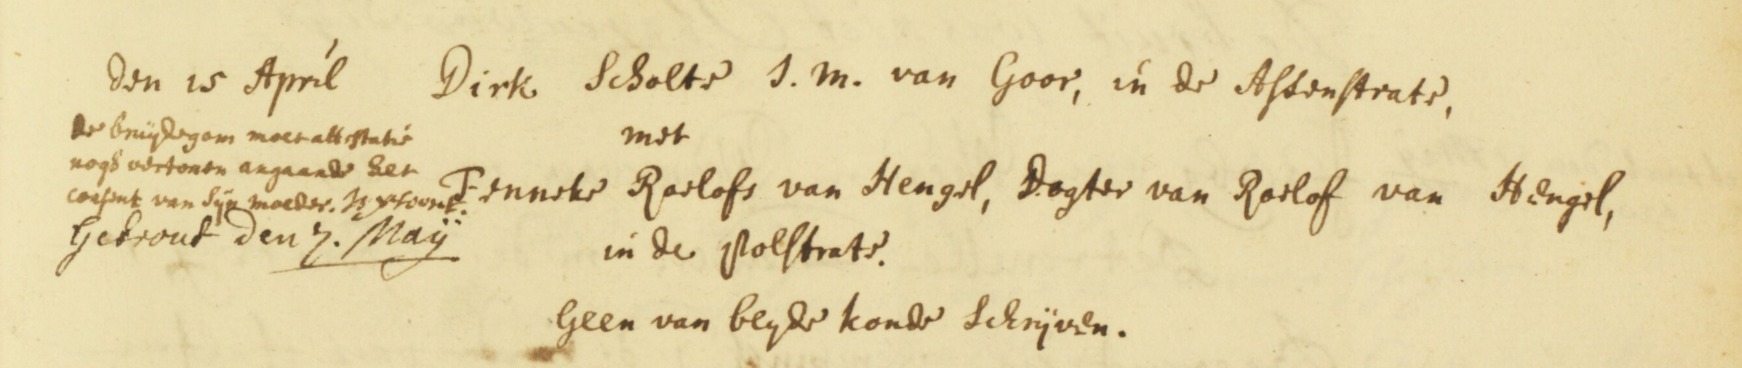 den 15 April Dirk Scholte J. M. van Goor, in de Assenstrate,
met
de bruijdegom moet attestatie
nogh vertonen angaande het
consent van Sijn moeder. Is verthoont.
Fenneke Roelofs van Hengel, Dogter van Roelof van Hengel,
Getrout den 7. Maij
in de Polstrate.
Geen van beyde konde Schrijven.